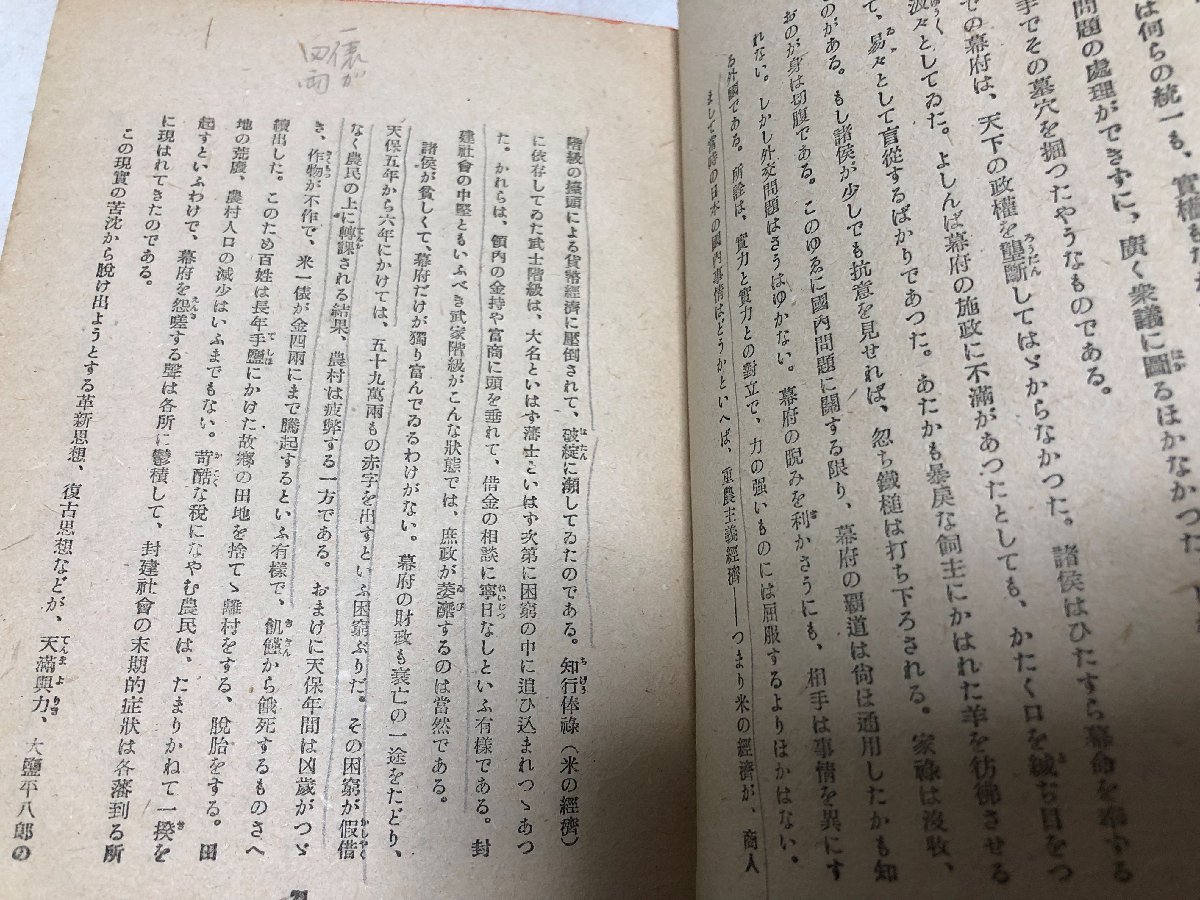 は何らの統一も、實權も
問題の處理ができずに、廣く衆議に圖るほかなかつた
手でその墓穴を掘つたやうなものである。
での幕府は、天下の政權を壟斷してはゞからなかつた。諸侯はひたすら幕命を奉する
汲々としてゐた。よしんば幕府の施政に不滿があつたとしても、かたく口を緘ぢ目をつ
て、易々として盲從するばかりであつた。あたかも暴戾な飼主にかはれた羊を彷彿させる
のがある。もし諸侯が少しでも抗意を見せれば、忽ち鐵槌は打ち下ろされる。家祿は沒收、
おのが身は切腹である。このゆゑに國内問題に關する限り、幕府の覇道は尙ほ通用したかも知
れない。しかし外交問題はさうはゆかない。幕府の睨みを利かさうにも、相手は事情を異にす
る外國である。所詮は、實力と實力との對立で、力の强いものには屈服するよりほかはない。
まして當時の日本の國内事情はどうかといへば、重農主義經濟――つまり米の經濟が、商人
階級の擡頭による貨幣經濟に壓倒されて、破綻に瀕してゐたのである。知行俸祿（米の經濟）
に依存してゐた武士階級は、大名といはず藩士といはず次第に困窮の中に追ひ込まれつゝあつ
た。かれらは、領内の金持や富商に頭を垂れて、借金の相談に寧日なしといふ有樣である。封
建社會の中堅ともいふべき武家階級がこんな狀態では、庶政が萎靡するのは當然である。
諸侯が貧しくて、幕府だけが獨り富んでゐるわけがない。幕府の財政も衰亡の一途をたどり、
天保五年から六年にかけては、五十九萬兩もの赤字を出すといふ困窮ぶりだ。その困窮が假借
なく農民の上に轉課される結果、農村は疲弊する一方である。おまけに天保年間は凶歲がつゞ
き、作物が不作で、米一俵が金四兩にまで騰起するといふ有樣で、飢饉から餓死するものさへ
續出した。このため百姓は長年手鹽にかけた故鄕の田地を捨てゝ離村をする、脫胎をする。田
地の荒廢、農村人口の減少はいふまでもない。苛酷な稅になやむ農民は、たまりかねて一揆を
起すといふわけで、幕府を怨嗟する聲は各所に鬱積して、封建社會の末期的症狀は各藩到る所
に現はれてきたのである。
この現實の苦沈から脫け出ようとする革新思想、復古思想などが、天滿與力、大鹽平八郞の
一俵が
四両